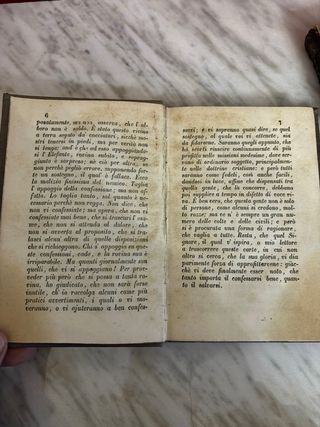 6
posatamente, sed non, osserva, che l'al-
bero non è saldo. È stato questo vicino
a terra segato da' cacciatori, sicchè mo-
stri tenersi in piedi, ma per verità non
si tenga: and'è chè ad esso appoggiandosi
l'Elefante, rovina subito, e sopraggiunto
è sorpreso; nè ciò per altro, se
non perchè pigliò errore, supponendo for-
te un sostegno, al qual è fallace. Ecco
la malizia finissima del nemico. Voglia
l'appoggio della confessione; ma non af-
fatto. Lo taglia tanto, sol quanto è ne-
cessario perchè non regga. Non dice, che
non vi confessiate: ma opera, che non vi
confessiate mai bene, che si trascuri l'esa-
me, che non si attenda al dolore, che
non si avverta al proposito, che si tra-
lasci alcun altra di quelle condizioni che
si richieggono. Chi s'appoggia su que-
ste confessioni, cade, e la rovina sua è
irreparabile. Ma quanti giornalmente son
quelli, che vi si appoggiano! Per prov-
veder più però che si possa a tanta ro-
vina, ho giudicato, che non sarà forse
inutile, ch'io raccolga alcuni come più
pratici avvertimenti, i quali o vi mo-
veranno, o vi ajuteranno a ben confes-
7
sarvi; e vi sapranno quasi dire, se quel
sostegno, al quale voi vi attenete, sia
da fidarsene. Saranno quegli appunto, che
ha scorti riuscire comunemente di più
profitto nelle missioni medesime, dove ser-
vono di ordinario soggetto, principalmente
nelle dottrine cristiane e però tutti
saranno come fedeli, così anche facili,
dandosi in luce, affine che dispensati tra
quella gente, che ìo conceda, debbano
poi supplire a tempo in difetto di voce vi-
va. È ben vero, che questa gente non è solo
di persone, come alcuni si credono, mol-
to rozze; ma ve n'è sempre un gran nu-
mero delle colte e delle civili; e però
si è procurata una forma di ragionare,
che vaglia a tutte. Resta, che quel Si-
gnore, il qual v'ispira, o mio lettore
a trascorrere queste carte, in cui non
altro si cerca, che la sua gloria, vi dia
parimente forza di approfittarvene: giac-
chè vi deve finalmente esser noto, che
tanto importa il confessarsi bene, quan-
to il salvarsi.